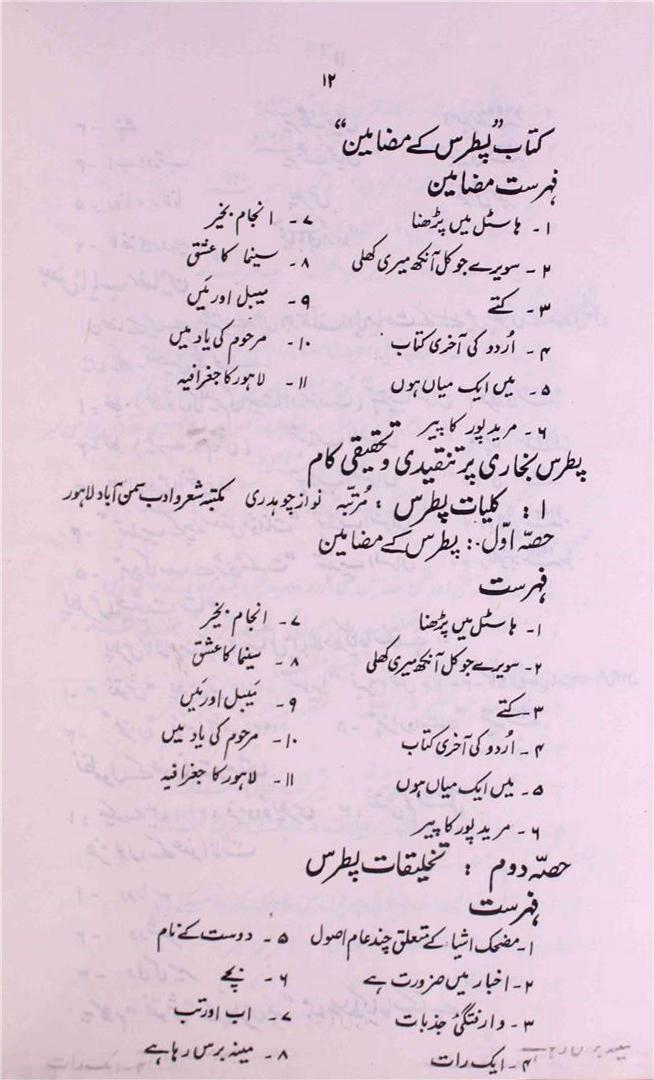 ۱۲
کتاب "پطرس کے مضامین"
فہرست مضامین
۱۔ ہاسٹل میں پڑھنا ۷۔ انجام بخیر
۲۔ سویرے جو کل آنکھ میری کھلی ۸۔ سینما کا عشق
۳۔ کتے ۹۔ میبل اور مَیں
۴۔ اُردو کی آخری کتاب ۱۰۔ مرحوم کی یاد میں
۵۔ میں ایک میاں ہوں ۱۱۔ لاہور کا جغرافیہ
۶۔ مرید پور کا پیر
پطرس بخاری پر تنقیدی و تحقیقی کام
۱: کلیات پطرس: مُرتبّہ نواز چوہدری مکتبہ شعر و ادب سمن آباد لاہور
حصّہ اوّل: پطرس کے مضامین
فہرست
۱۔ ہاسٹل میں پڑھنا ۷۔ انجام بخیر
۲۔ سویرے جو کل آنکھ میری کھلی ۸۔ سینما کا عشق
۳۔ کتے ۹۔ مَیبل اور مَیں
۴۔ اُردو کی آخری کتاب ۱۰۔ مرحوم کی یاد میں
۵۔ میں ایک میاں ہوں ۱۱۔ لاہور کا جغرافیہ
۶۔ مرید پور کا پیر
حصّہ دوم: تخلیقات پطرس
فہرست
۱۔ مضحک اشیا کے متعلق چند عام اصول ۵۔ دوست کے نام
۲۔ اخبار میں ضرورت ہے ۶۔ بچے
۳۔ وارفتگئ جذبات ۷۔ اب اور تب
۴۔ ایک رات ۸۔ مینہ برس رہا ہے